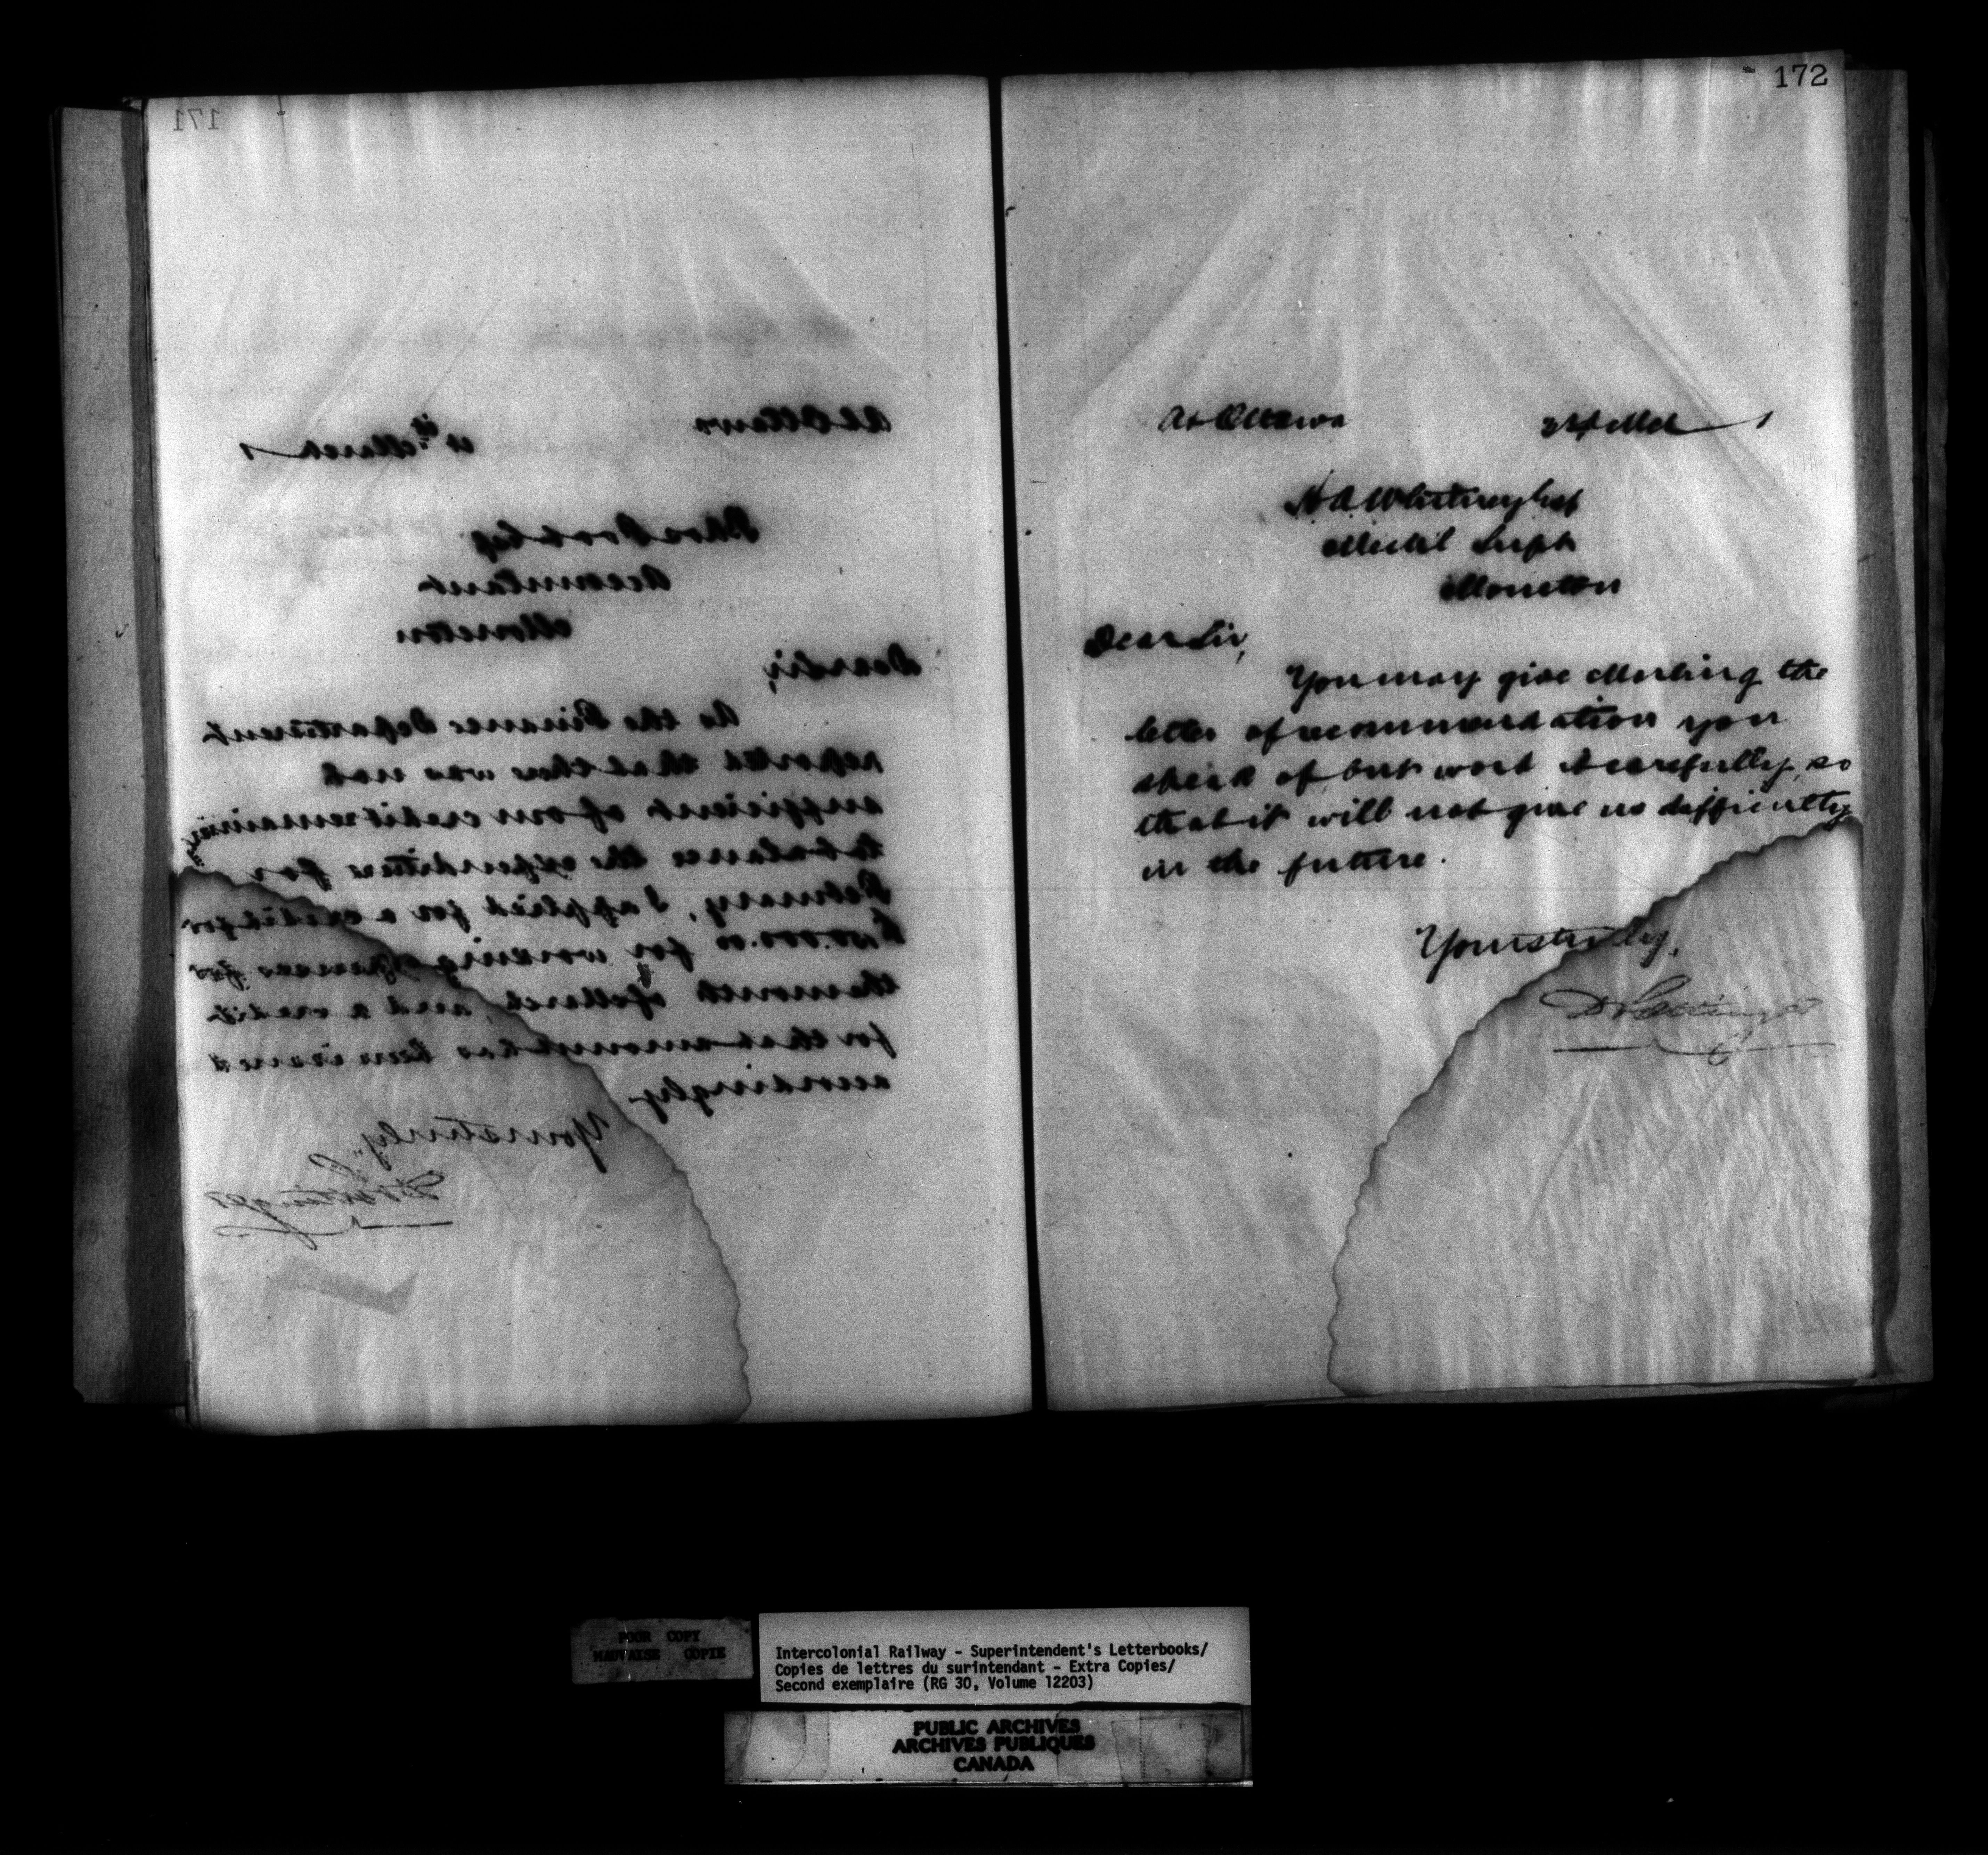 171
At Ottawa
March 1
Thos Cooley
Accountant
Moncton
Dear Sir,
As the Finance Department
reported that there was not
sufficient of our credit remaining
to balance the expenditure for
February, I applied for a credit for
for working expenses for
the month of March, and a credit
for that amount has been issued
accordingly
Yours truly,
D Pottinger
172
At Ottawa
1
H. A. Whitney Esq
Mech'l Supt
Moncton
Dear Sir,
You may give the
letter of recommendation you
speak of but word it carefully, so
that it will not give us difficulty
in the future.
Yours truly,
D Pottinger
POOR COPY
MAUVAISE COPIE
Intercolonial Railway - Superintendent's Letterbooks/
Copies de lettres du surintendant - Extra Copies/
Second exemplaire (RG 30, Volume 12203)
PUBLIC ARCHIVES
ARCHIVES PUBLIQUES
CANADA